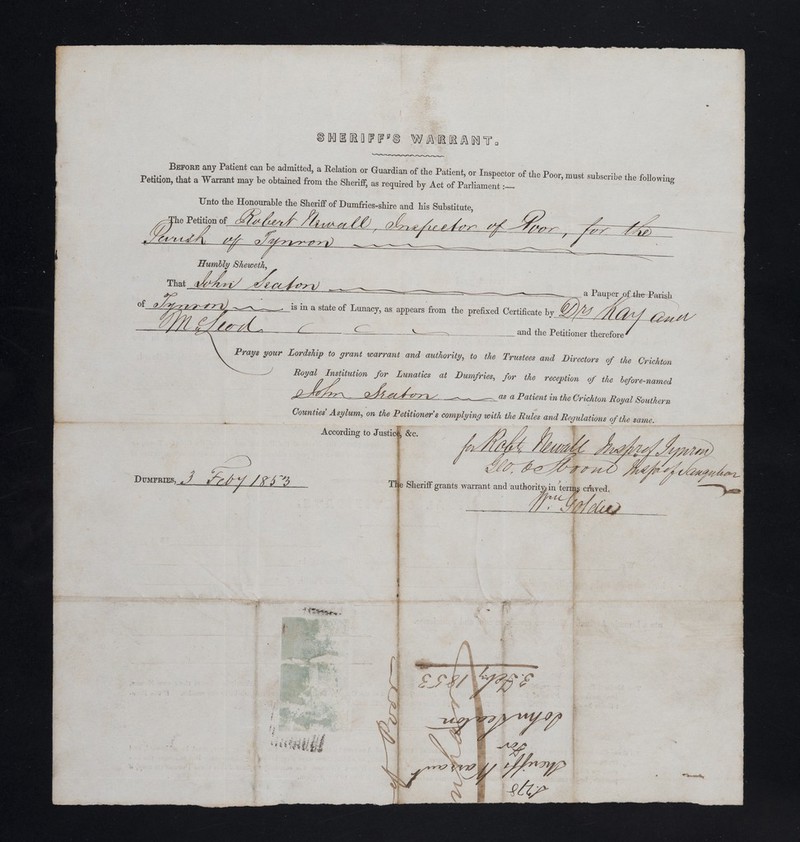 SHERIFF'S WARRANT.
BEFORE any Patient can be admitted, a Relation or Guardian of the Patient, or Inspector of the Poor, must subscribe the following
Petition, that a Warrant may be obtained from the Sheriff, as required by Act of Parliament :—
Unto the Honourable the Sheriff of Dumfries-shire and his Substitute,
The Petition of Robert Newall, Inspector of Poor, for the
Parish of Tynron
Humbly Sheweth,
That John Seaton a Pauper of the Parish
of Tynron is in a state of Lunacy, as appears from the prefixed Certificate by Drs Kay and
McLeod and the Petitioner therefore
Prays your Lordship to grant warrant and authority, to the Trustees and Directors of the Crichton
Royal Institution for Lunatics at Dumfries, for the reception of the before-named
John Seaton as a Patient in the Crichton Royal Southern
Counties' Asylum, on the Petitioner's complying with the Rules and Regulations of the same.
According to Justice, &c.
for Robt Newall Inspr of Tynron
Geo. Inspr of
DUMFRIES, 3 Feby 1853
The Sheriff grants warrant and authority in terms craved.
Wm Goldie
Sheriffs Warrant
For
John Seaton
3. Feby 1853